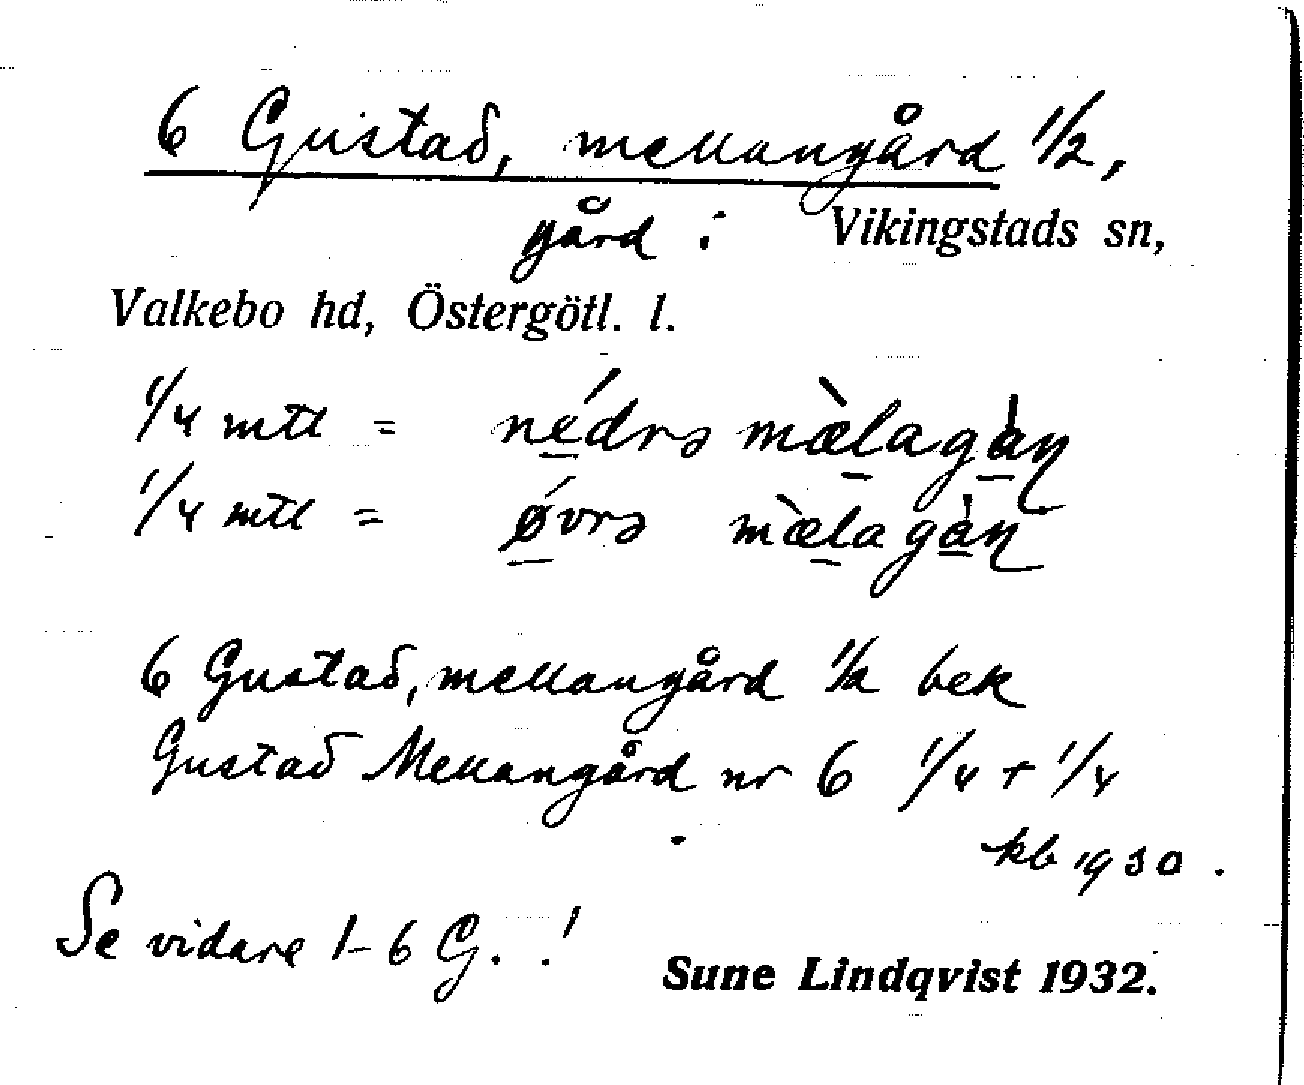 6 Gustad, mellangård 1/2,
gård i Vikingstads sn,
Valkebo hd, Östergötl. l.
1/4 mtl = nédrə mæ̀lagàɳ
1/4 mtl = ǿvrə mæ̀lagàɳ
6 Gustad, mellangård 1/2 bek
Gustad Mellangård nr 6 1/4 + 1/4
kb 1930.
Se vidare 1-6 G. . !
Sune Lindqvist 1932.